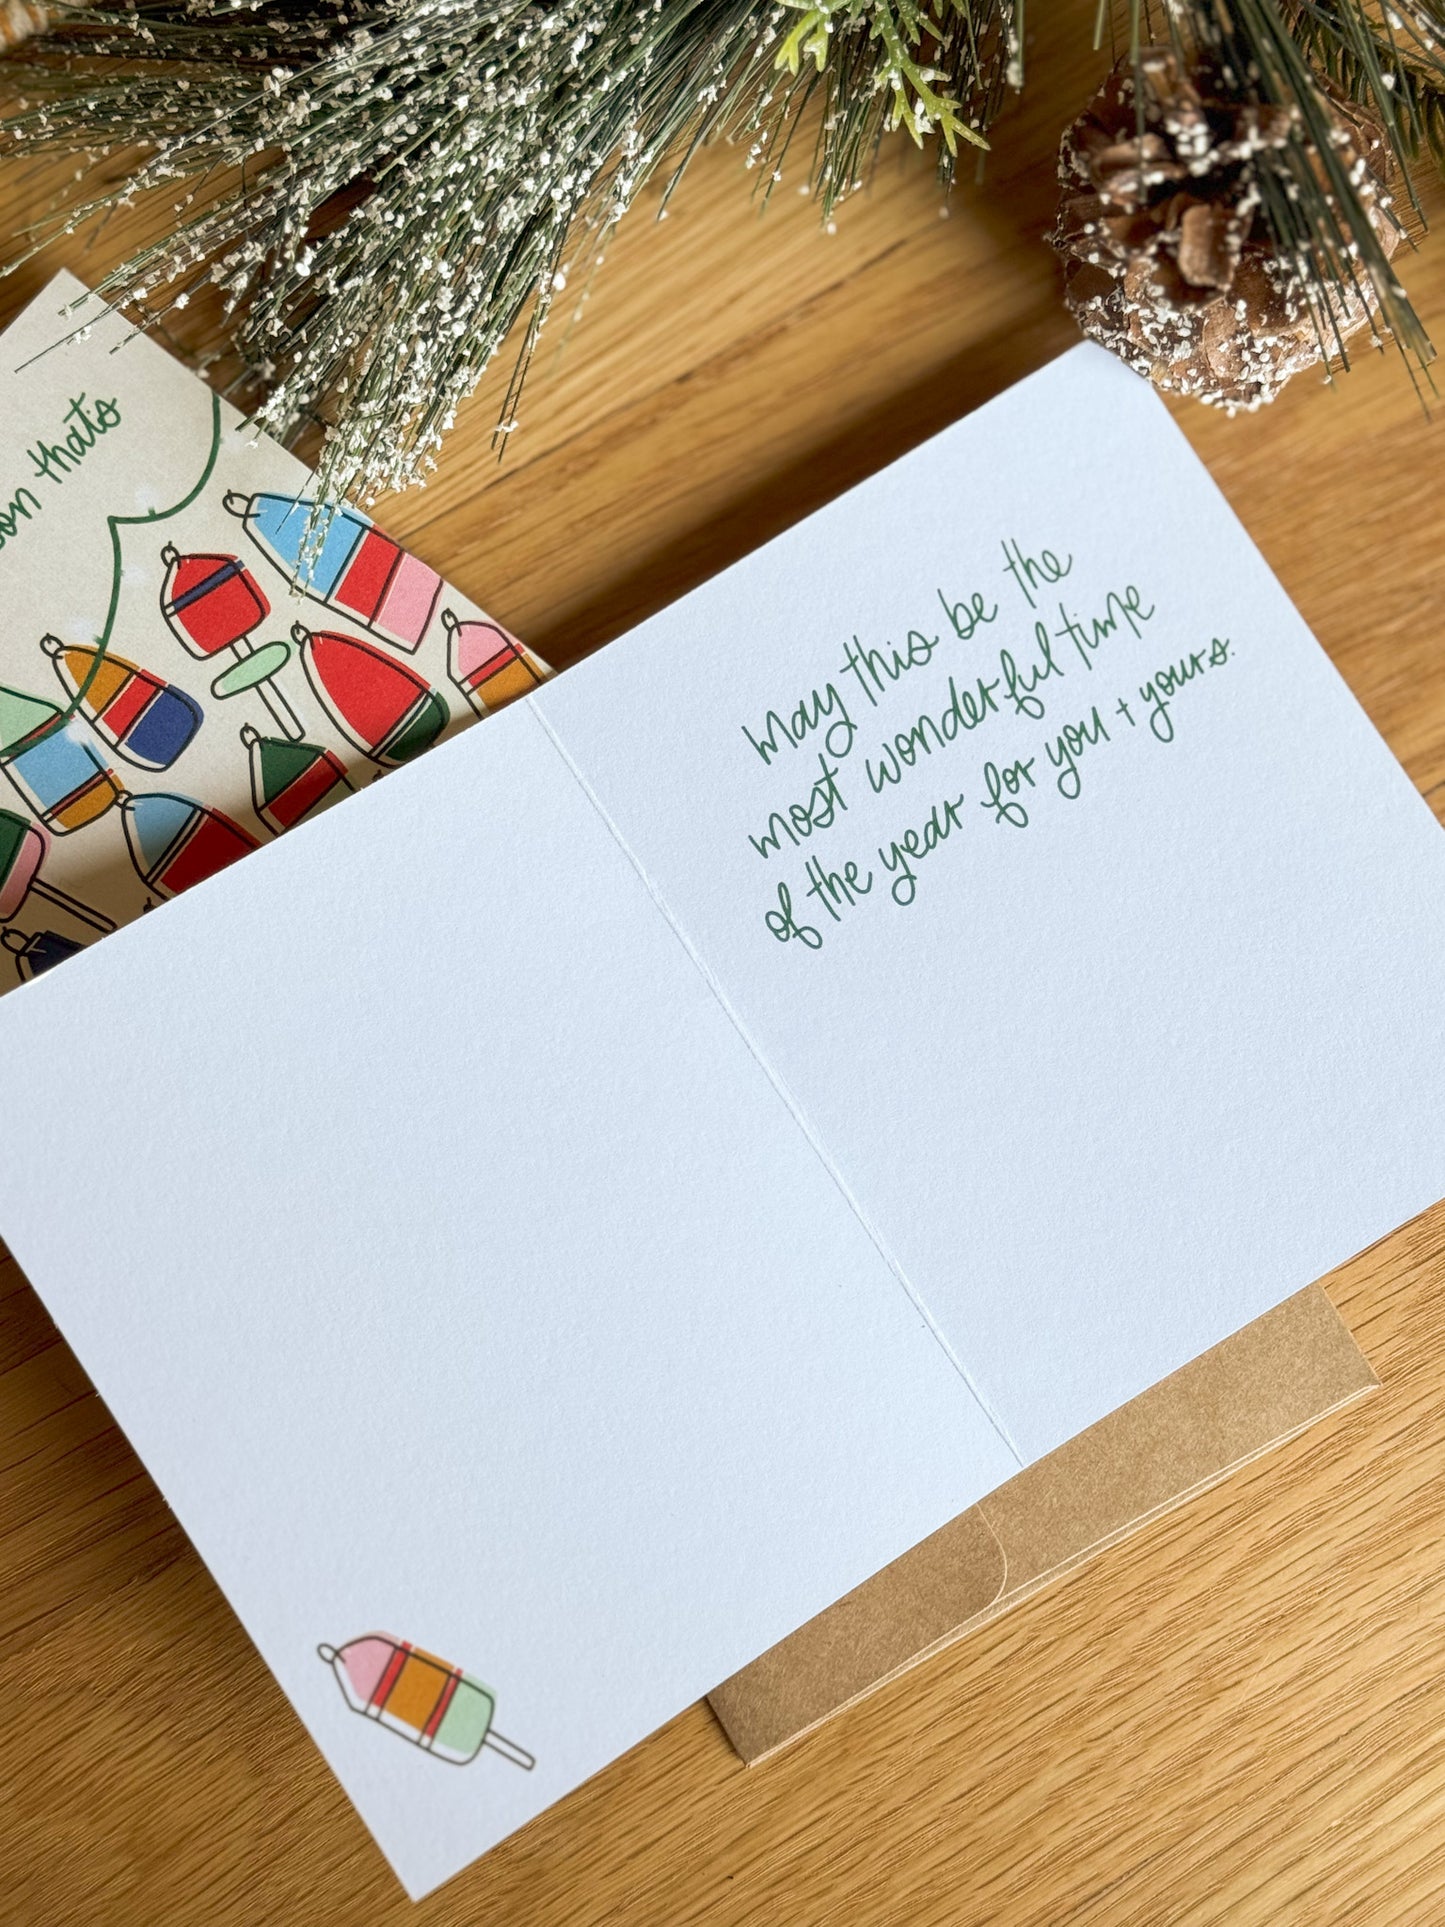 that's
May this be the
most wonderful time
of the year for you + yours.